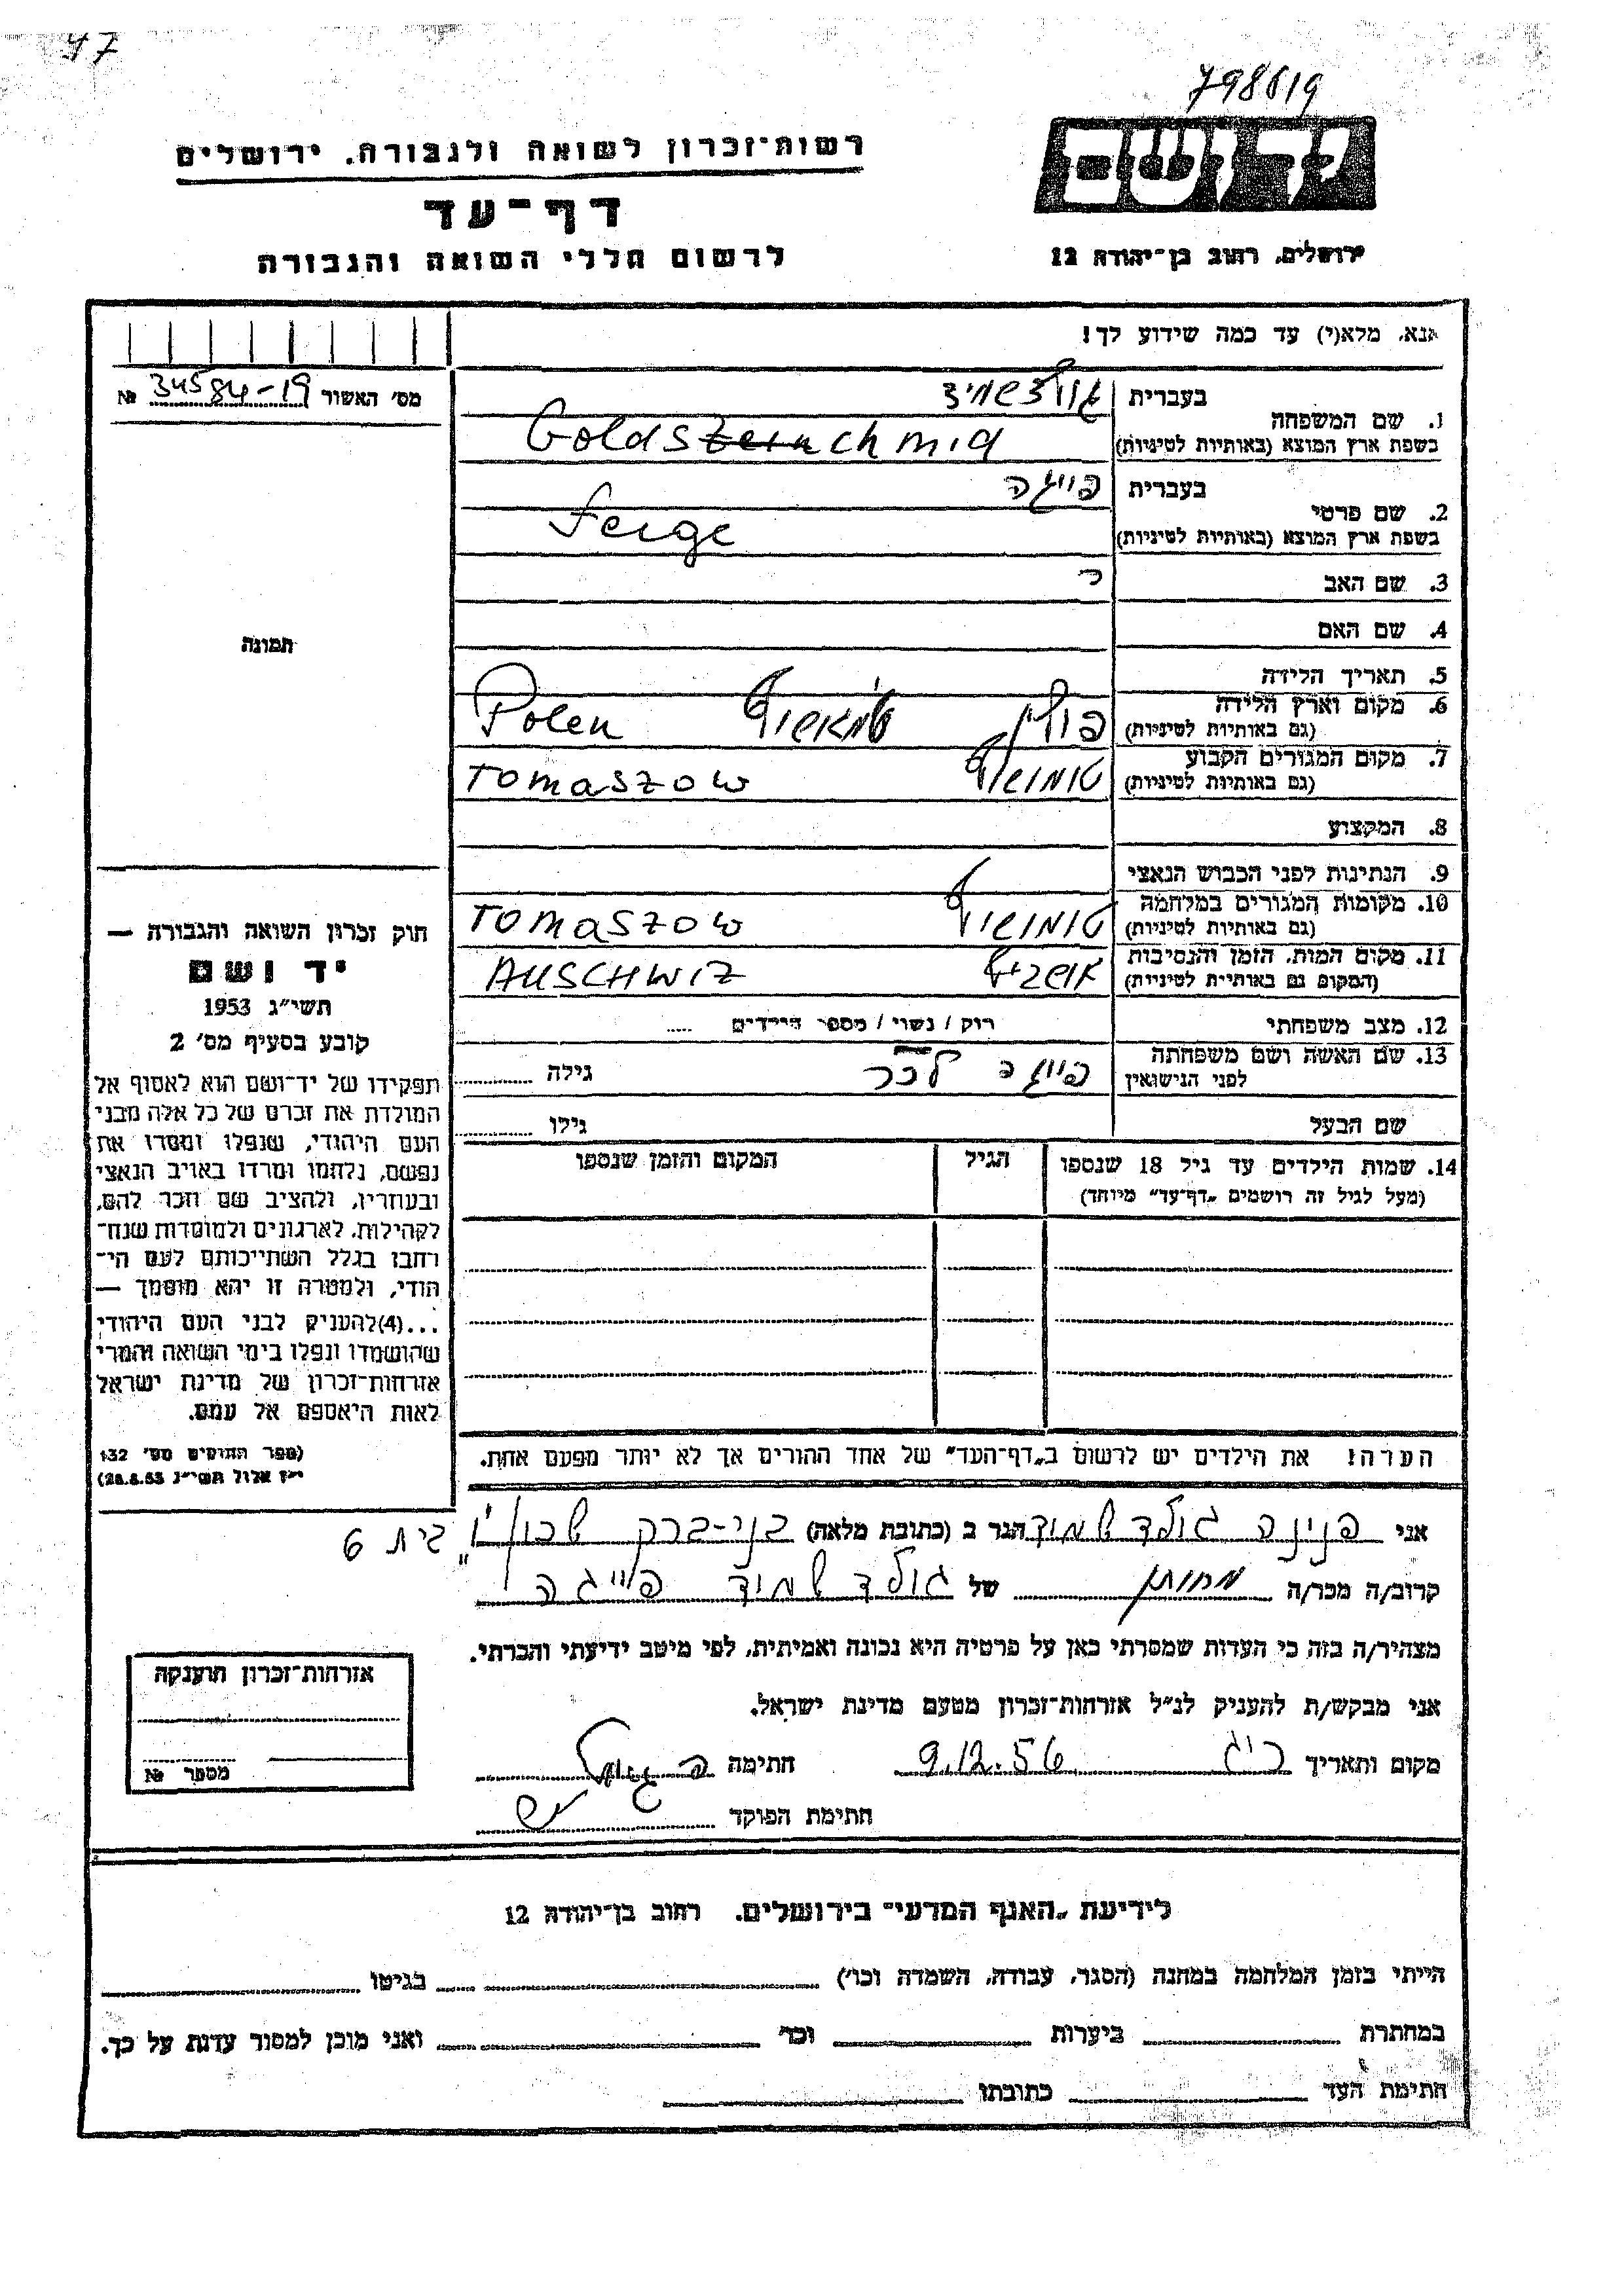 47
798619
יד ושם
רשות־זכרון לשואה ולגבורה. ירושלים
דף־עד
לרשום חללי השואה והגבורה
ירושלים, רחוב בן־יהודה 12
אנא, מלא(י) עד כמה שידוע לך!
מס' האשור 34584-19 №
1. שם המשפחה
בעברית גולדשמיד
בשפת ארץ המוצא (באותיות לטיניות) Goldschmid
2. שם פרטי
בעברית פייגה
בשפת ארץ המוצא (באותיות לטיניות) Feige
3. שם האב
4. שם האם
תמונה
5. תאריך הלידה
6. מקום וארץ הלידה
(גם באותיות לטיניות) פולין טומאשוף Polen
7. מקום המגורים הקבוע
(גם באותיות לטיניות) טומושוף Tomaszow
8. המקצוע
9. הנתינות לפני הכבוש הנאצי
10. מקומות המגורים במלחמה
(גם באותיות לטיניות) טומושוף Tomaszow
11. מקום המות, הזמן והנסיבות
(המקום גם באותיות לטיניות) AUSCHWIZ
12. מצב משפחתי רוק / נשוי / מספר הילדים .....
13. שם האשה ושם משפחתה
לפני הנישואין פייגה גילה
שם הבעל גילו
14. שמות הילדים עד גיל 18 שנספו
(מעל לגיל זה רושמים „דף־עד” מיוחד)
הגיל
המקום והזמן שנספו
חוק זכרון השואה והגבורה —
יד ושם
תשי״ג 1953
קובע בסעיף מס' 2
תפקידו של יד־ושם הוא לאסוף אל
המולדת את זכרם של כל אלה מבני
העם היהודי, שנפלו ומסרו את
נפשם, נלחמו ומרדו באויב הנאצי
ובעוזריו, ולהציב שם וזכר להם,
לקהילות, לארגונים ולמוסדות שנח־
רחבו בגלל השתייכותם לעם הי־
הודי, ולמטרה זו יהא מוסמך —
...(4)להעניק לבני העם היהודי
שהושמדו ונפלו בימי השואה והמרי
אזרחות־זכרון של מדינת ישראל
לאות היאספם אל עמם.
(ספר החוקים מס' 132
י״ז אלול תשי״ג 28.8.53)
הערה! את הילדים יש לרשום ב„דף־העד” של אחד ההורים אך לא יותר מפעם אחת.
אני פנינה גולדשמיד הגר ב (כתובת מלאה) בני-ברק בית 6
קרוב/ה מכר/ה של גולדשמיד פייגה
מצהיר/ה בזה כי העדות שמסרתי כאן על פרטיה היא נכונה ואמיתית, לפי מיטב ידיעתי והכרתי.
אני מבקש/ת להעניק לנ״ל אזרחות־זכרון מטעם מדינת ישראל.
מקום ותאריך 9.12.56 חתימה
חתימת הפוקד
אזרחות־זכרון הוענקה
מספר №
לידיעת „האגף המדעי” בירושלים. רחוב בן־יהודה 12
הייתי בזמן המלחמה במחנה (הסגר, עבודה, השמדה וכו') בגיטו
במחתרת ביערות וכו' ואני מוכן למסור עדות על כך.
חתימת העד כתובתו